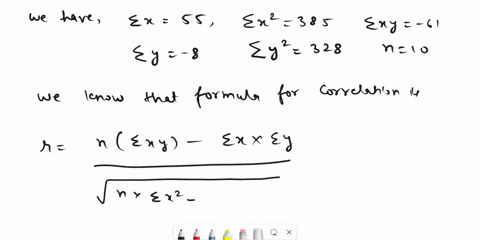 we have, Σx = 55, Σx² = 385 Σxy = -61
Σy = -8 Σy² = 328 n = 10
we know that formula for correlation is
r = n (Σxy) - Σx × Σy
√n × Σx² -